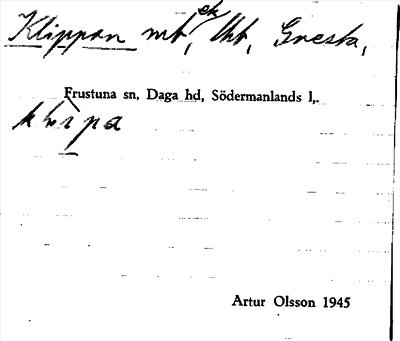 Klippan mt, ek lht, Gnesta,
Frustuna sn, Daga hd, Södermanlands l,.
klìpa
Artur Olsson 1945